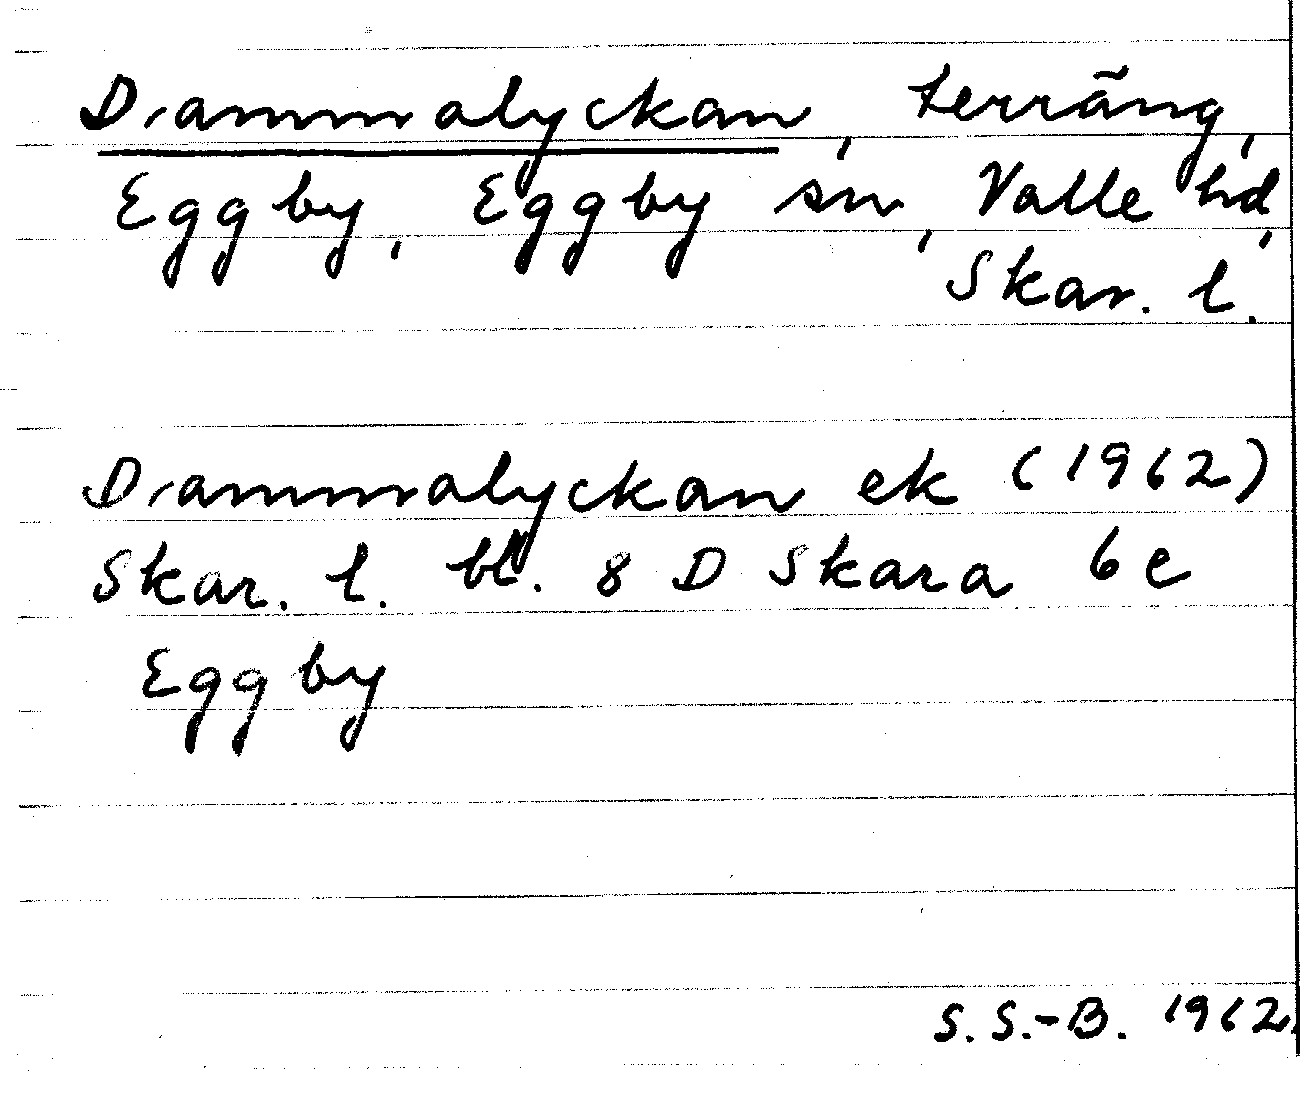 Drammalyckan, terräng,
Eggby, Eggby sn, Valle hd,
Skar. l.
Drammalyckan ek (1962)
Skar. l. bl. 8 D Skara 6e
Eggby
S. S.-B. 1962.